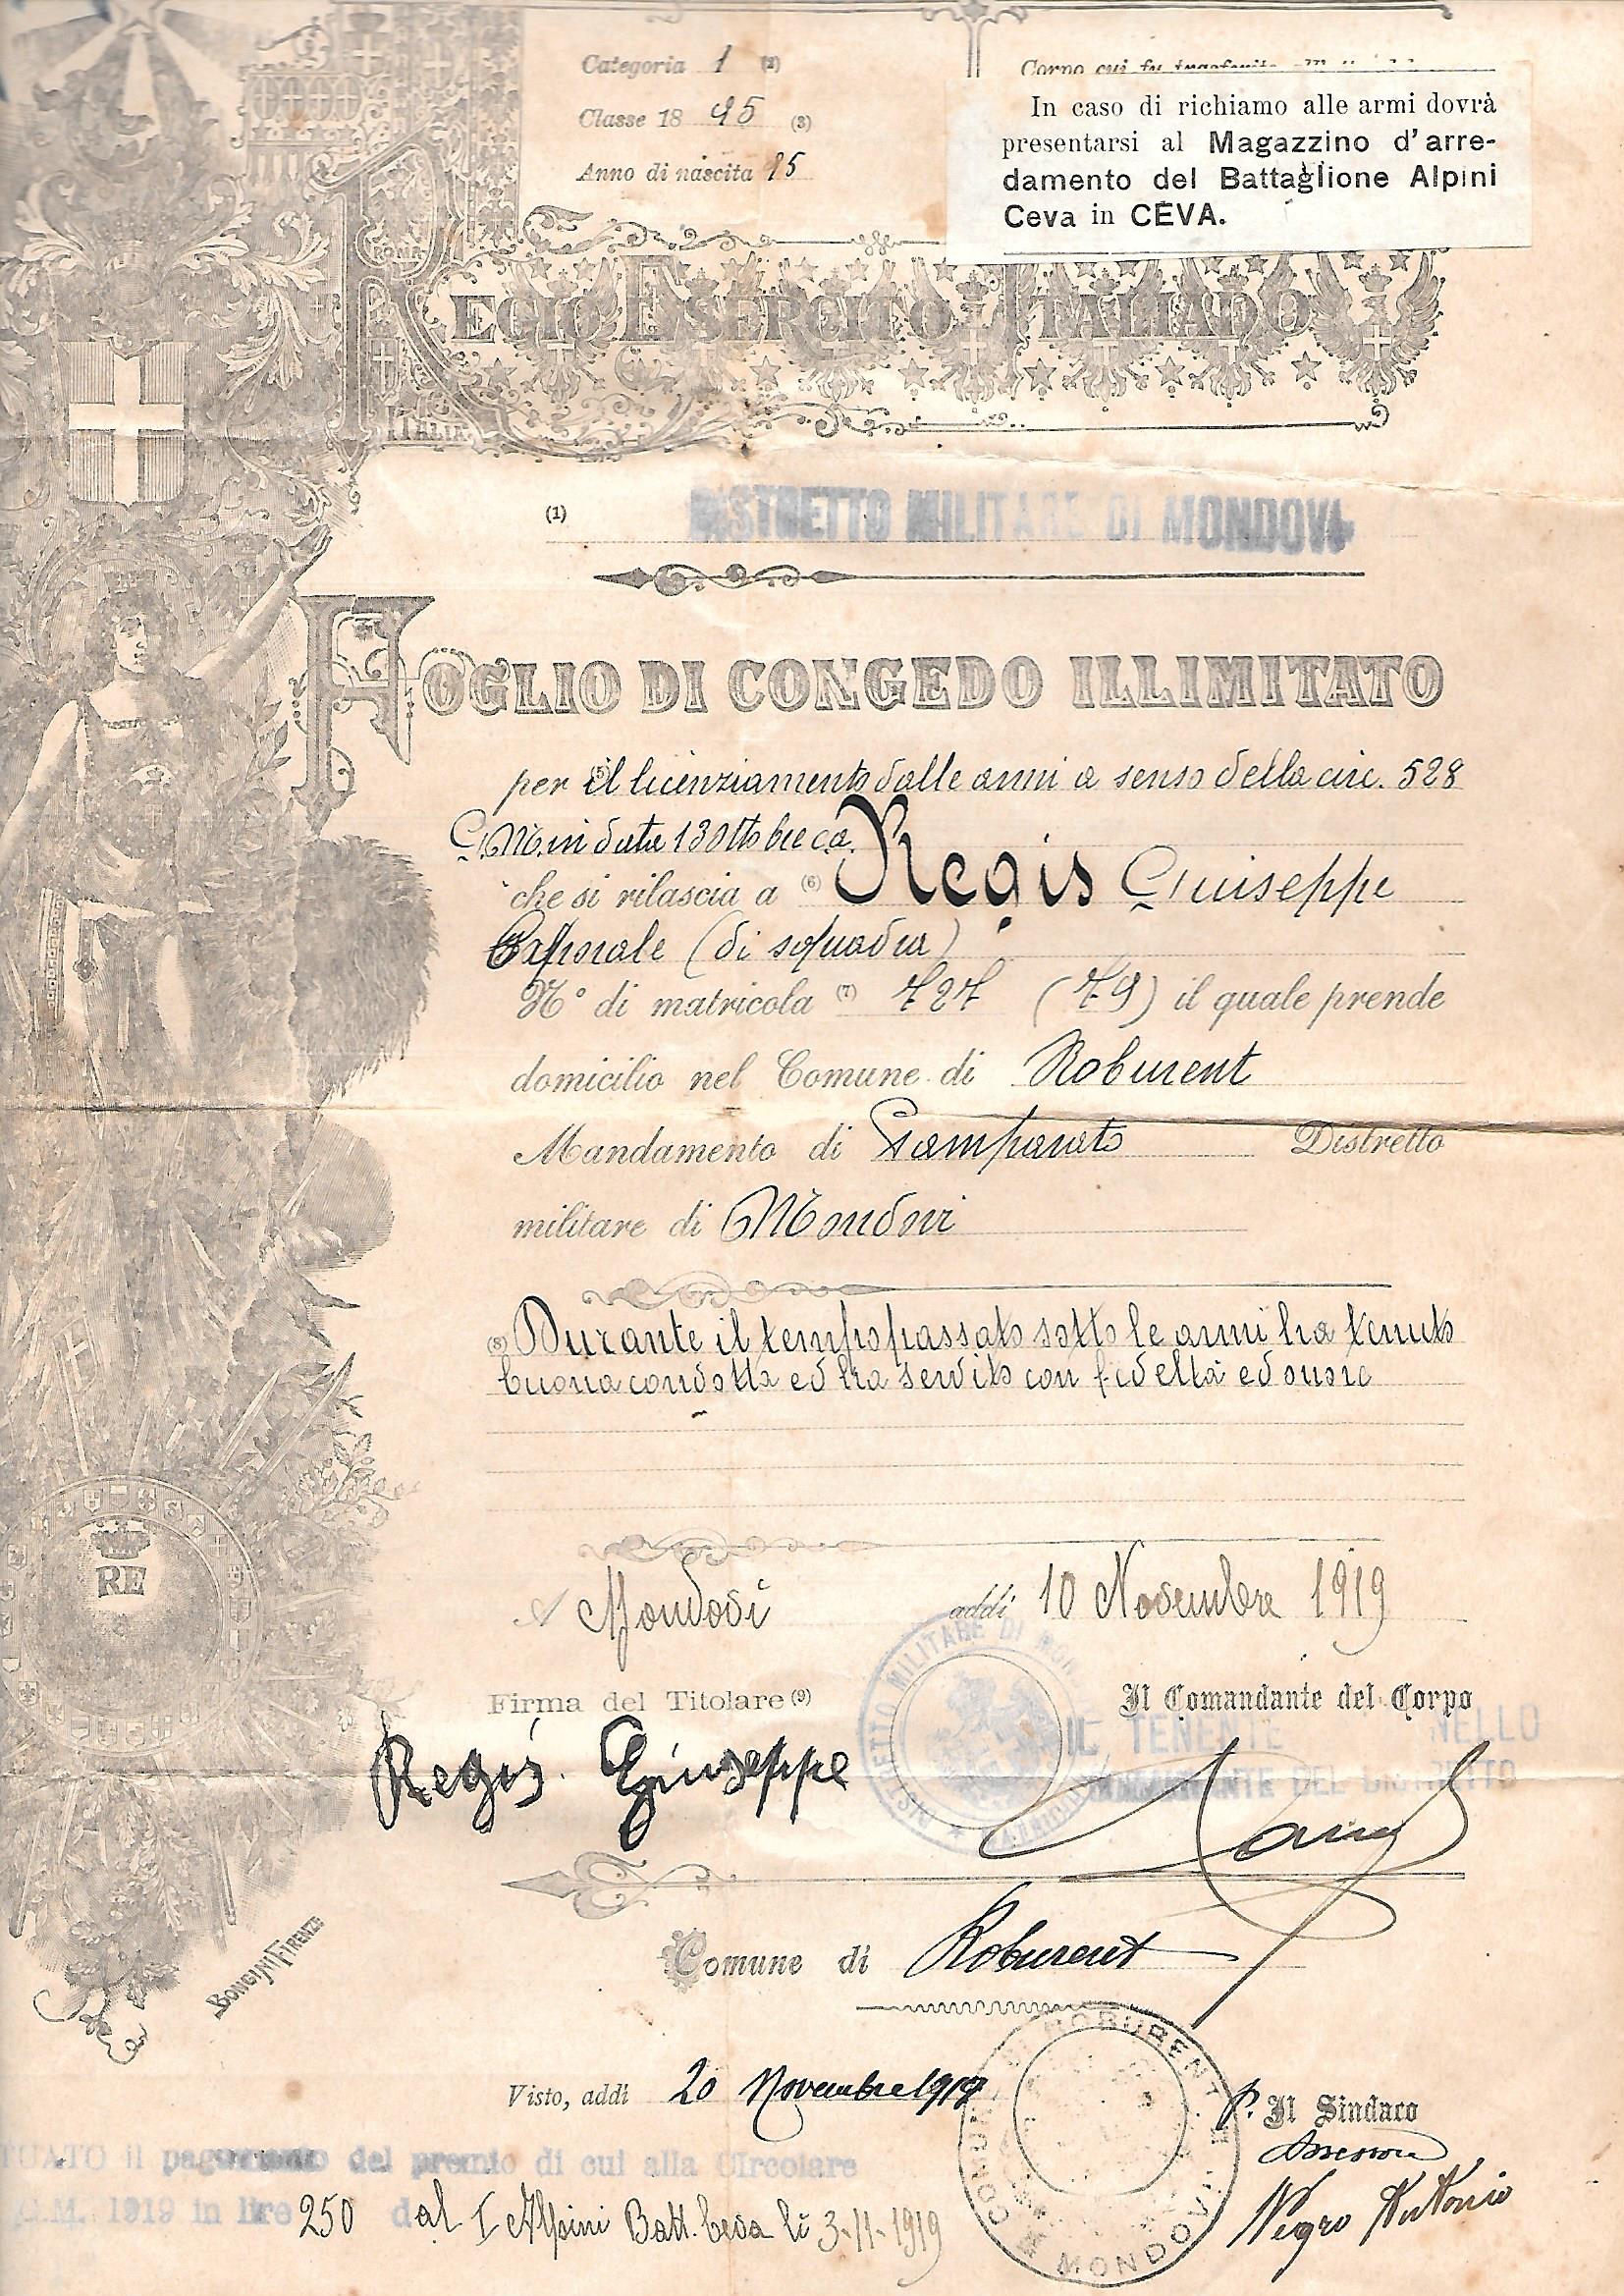 Categoria 1 (2)
Classe 18 95 (3)
Anno di nascita 95
Corpo cui fu trasferito
In caso di richiamo alle armi dovrà
presentarsi al Magazzino d'arre-
damento del Battaglione Alpini
Ceva in CEVA.
ROMA
REGIO ESERCITO ITALIANO
ITALIA
(1) DISTRETTO MILITARE DI MONDOVI
FOGLIO DI CONGEDO ILLIMITATO
per (5) il licenziamento dalle armi a senso della circ. 528
G.M. in data 13 Ottobre c.a.
che si rilascia a (6) Regis Giuseppe
Caporale (di squadra)
N° di matricola (7) 727 (79) il quale prende
domicilio nel Comune di Roburent
Mandamento di Pamparato Distretto
militare di Mondovi
(8) Durante il tempo passato sotto le armi ha tenuto
buona condotta ed ha servito con fedeltà ed onore
RE
A Mondovi addi 10 Novembre 1919
DISTRETTO MILITARE DI MON
Firma del Titolare (9) Il Comandante del Corpo
IL TENENTE NELLO
COMANDANTE DEL DISTRETTO
Regis Giuseppe
BONGINI FIRENZE
Comune di Roburent
COMUNE DI ROBURENT MONDOVI
Visto, addi 20 Novembre 1919 p. Il Sindaco
Assessore
Negro Antonio
TUATO il pagamento del premio di cui alla Circolare
G.M. 1919 in lire 250 dal I Alpini Batt. Ceva li 3-11-1919